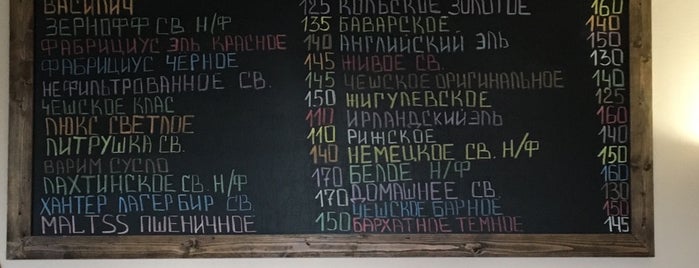 ВАСИЛИЧ 125
ЗЕРНОФФ СВ. Н/Ф 135
ФАБРИЦИУС ЭЛЬ КРАСНОЕ 140
ФАБРИЦИУС ЧЕРНОЕ 145
НЕФИЛЬТРОВАННОЕ СВ. 145
ЧЕШСКОЕ КЛАС 150
ЛЮКС СВЕТЛОЕ 110
ПИТРУШКА СВ. 110
ВАРИМ СУСЛО 140
ЛАХТИНСКОЕ СВ. Н/Ф 170
ХАНТЕР ЛАГЕР БИР СВ. 170
MALTSS ПШЕНИЧНОЕ 150
КОЛЬСКОЕ ЗОЛОТОЕ 160
БАВАРСКОЕ 140
АНГЛИЙСКИЙ ЭЛЬ 150
ЖИВОЕ СВ. 130
ЧЕШСКОЕ ОРИГИНАЛЬНОЕ 140
ЖИГУЛЕВСКОЕ 125
ИРЛАНДСКИЙ ЭЛЬ 160
РИЖСКОЕ 140
НЕМЕЦКОЕ СВ. Н/Ф 150
БЕЛОЕ Н/Ф 160
ДОМАШНЕЕ СВ. 130
ЧЕШСКОЕ БАРНОЕ 150
БАРХАТНОЕ ТЕМНОЕ 145